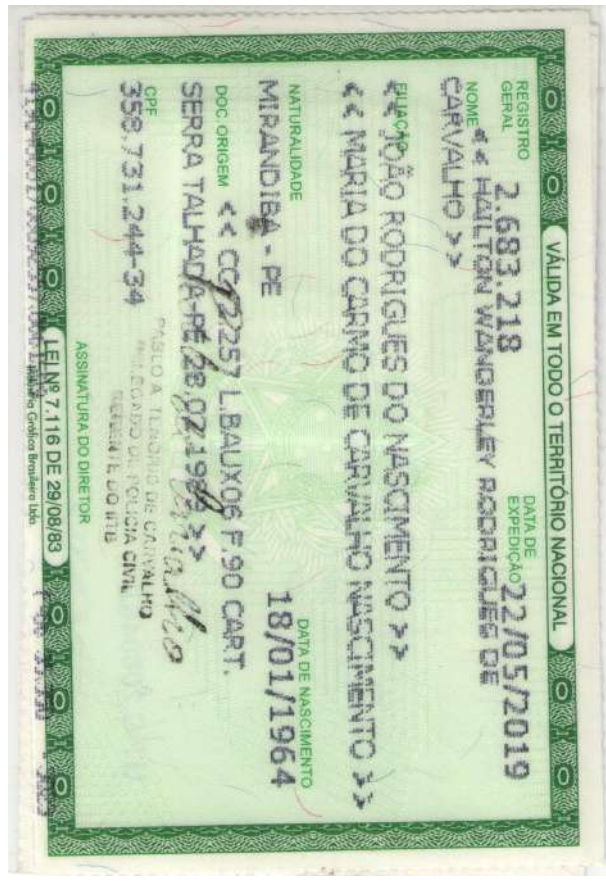 VÁLIDA EM TODO O TERRITÓRIO NACIONAL
REGISTRO GERAL 2.683.218 DATA DE EXPEDIÇÃO 22/05/2019
NOME << HAILTON WANDERLEY RODRIGUES DE
CARVALHO >>
FILIAÇÃO
<< JOÃO RODRIGUES DO NASCIMENTO >>
<< MARIA DO CARMO DE CARVALHO NASCIMENTO >>
NATURALIDADE DATA DE NASCIMENTO
MIRANDIBA - PE 18/01/1964
DOC ORIGEM << CC 2.257 L.BAUX06 F.90 CART.
SERRA TALHADA-PE 28.02.198 >>
CPF
358.731.244-34
PABLO A. TENÓRIO DE CARVALHO
DELEGADO DE POLICIA CIVIL
GERENTE DO IITB
ASSINATURA DO DIRETOR
LEI Nº 7.116 DE 29/08/83
Gráfica Brasileira Ltda